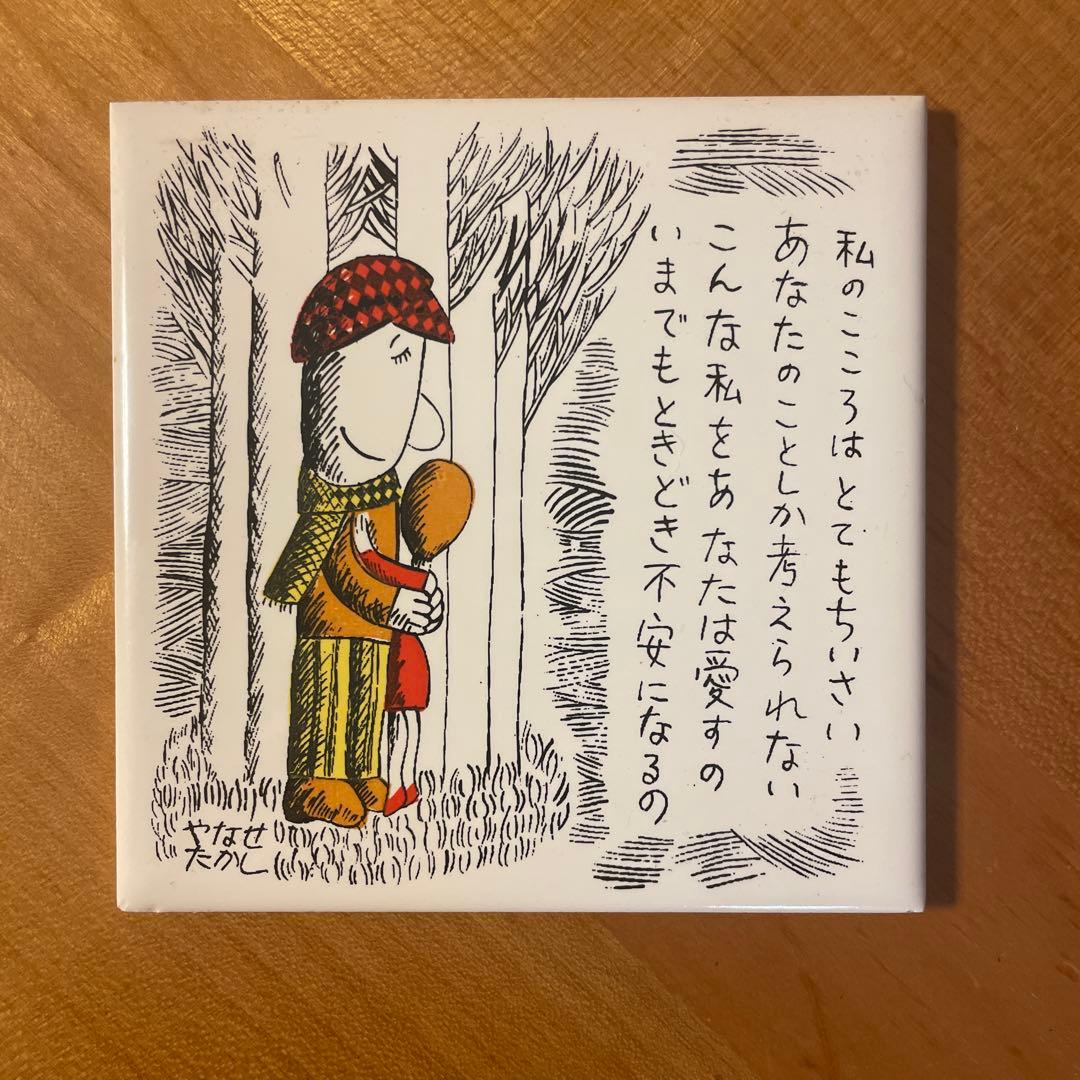 私のこころはとてもちいさい
あなたのことしか考えられない
こんな私をあなたは愛すの
いまでもときどき不安になるの
やなせ
たかし